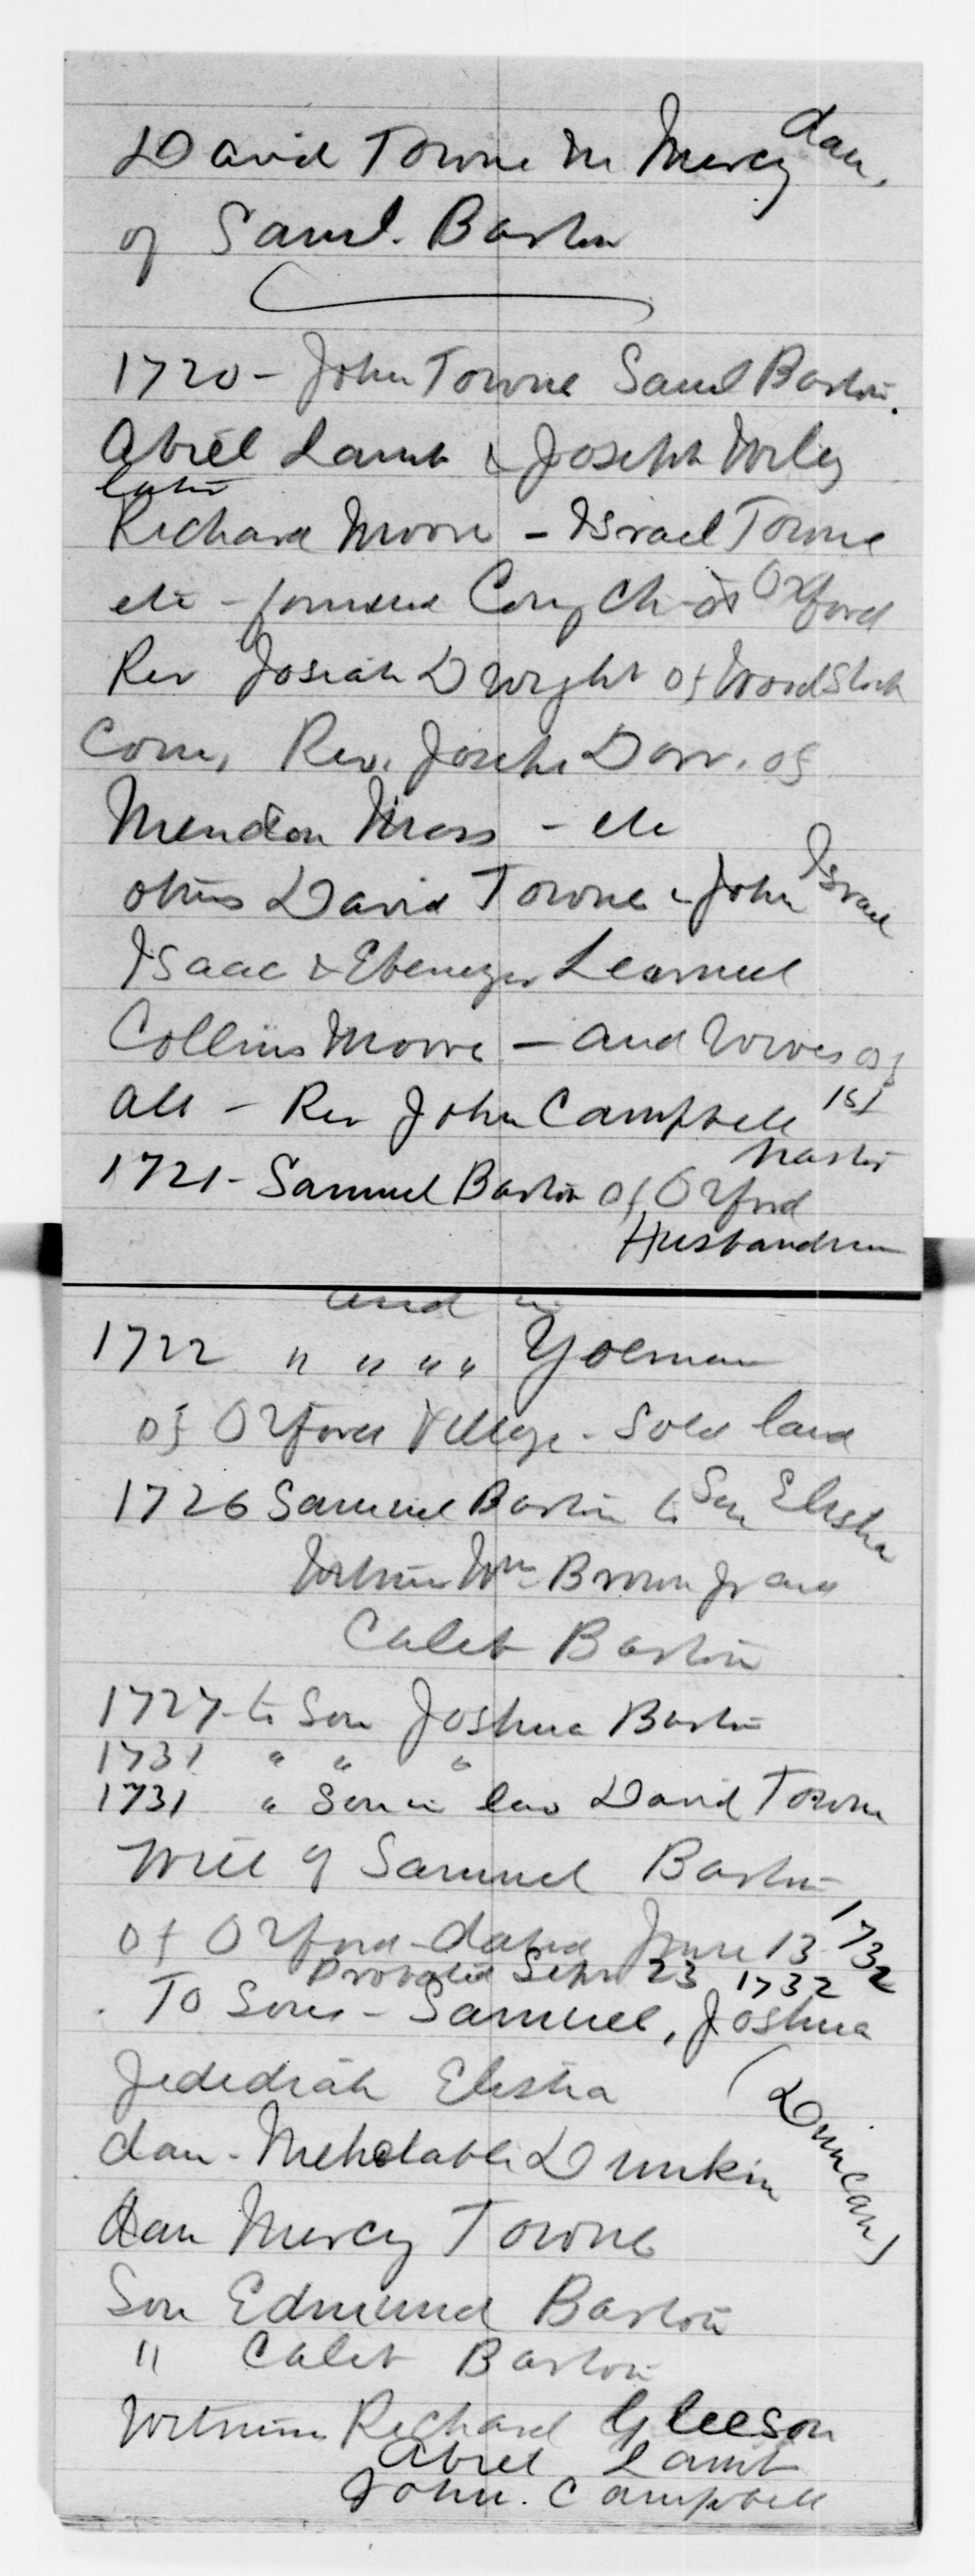 David Towne m Mercy dau.
of Saml. Barton
1720 - John Towne Saml Barton.
Abiel Lamb & Joseph Wiley
later
Richard Moore - Israel Towne
etc - formed Cong Ch at Oxford
Rev Josiah Dwight of Woodstock
Conn, Rev. Joseph Dorr. of
Mendon Mass - etc
others David Towne & John Israel
Isaac & Ebenezer Learned
Collins Moore - and wives of
all - Rev John Campbell 1st
pastor
1721 - Samuel Barton of Oxford
Husbandman
and in
1722 " " " " Yoeman
of Oxford Village - sold land
1726 Samuel Barton to Son Elisha
Witness Wm Brown Jr and
Caleb Barton
1727 - to Son Joshua Barton
1731 " " "
1731 " Son in law David Towne
Will of Samuel Barton
of Oxford - dated June 13 - 1732
Probated Sept 23 1732
To Sons - Samuel, Joshua
Jedediah Elisha
dau - Mehetable Dunkin (Duncan)
dau Mercy Towne
Son Edmund Barton
" Caleb Barton
Witness Richard Gleeson
Abiel Lamb
John. Campbell